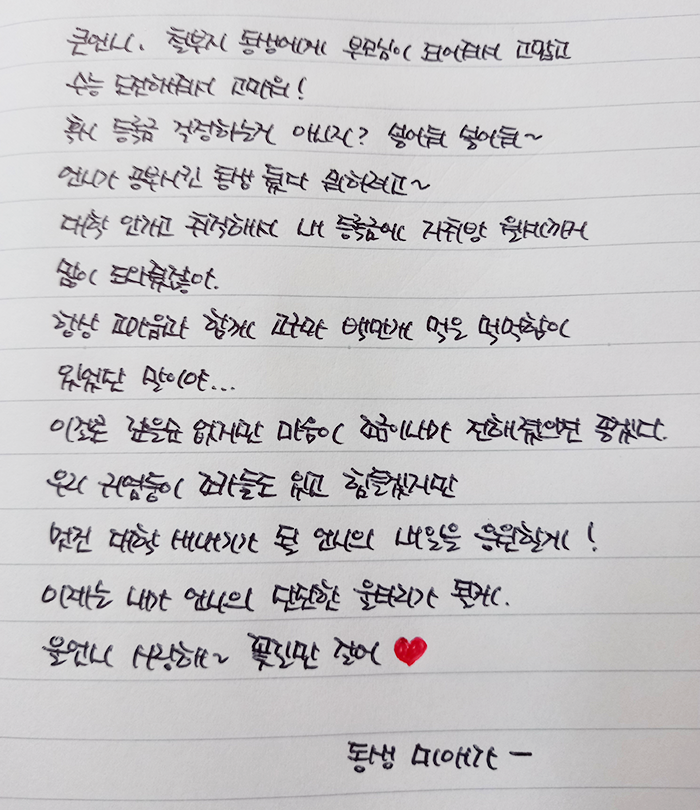 큰언니. 철부지 동생에게 부모님이 되어줘서 고맙고
수능 도전해줘서 고마워!
혹시 등록금 걱정하는거 아니지? 넣어둬 넣어둬~
언니가 공부시킨 동생 뒀다 뭐하려고~
대학 안가고 취직해서 내 등록금에 자취방 월세까지
많이 도와줬잖아.
항상 고마움과 함께 고구마 백만개 먹은 먹먹함이
있었단 말이야...
이걸론 갚을순 없지만 마음이 조금이나마 전해졌으면 좋겠다.
우리 귀염둥이 조카들도 있고 힘들겠지만
멋진 대학 새내기가 될 언니의 내일을 응원할게!
이제는 내가 언니의 단단한 울타리가 될게.
울언니 사랑해~ 꽃길만 걸어 ♥
동생 미애가 -